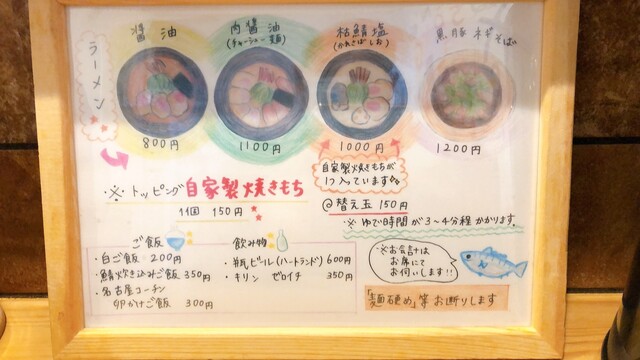 ラーメン
醤油
800円
肉醤油
(チャーシュー麺)
1100円
枯鯖塩
(かれさばしお)
1000円
黒豚ネギそば
1200円
自家製焼きもちが
1つ入っています
※トッピング 自家製焼きもち
1個 150円
@替え玉 150円
※ゆで時間が3〜4分程かかります.
ご飯
・白ご飯 200円
・鯖炊き込みご飯 350円
・名古屋コーチン
卵かけご飯 300円
飲み物
・瓶ビール(ハートランド) 600円
・キリン ゼロイチ 350円
※お会計は
お席にて
お伺いします!!
「麺硬め」等お断りします